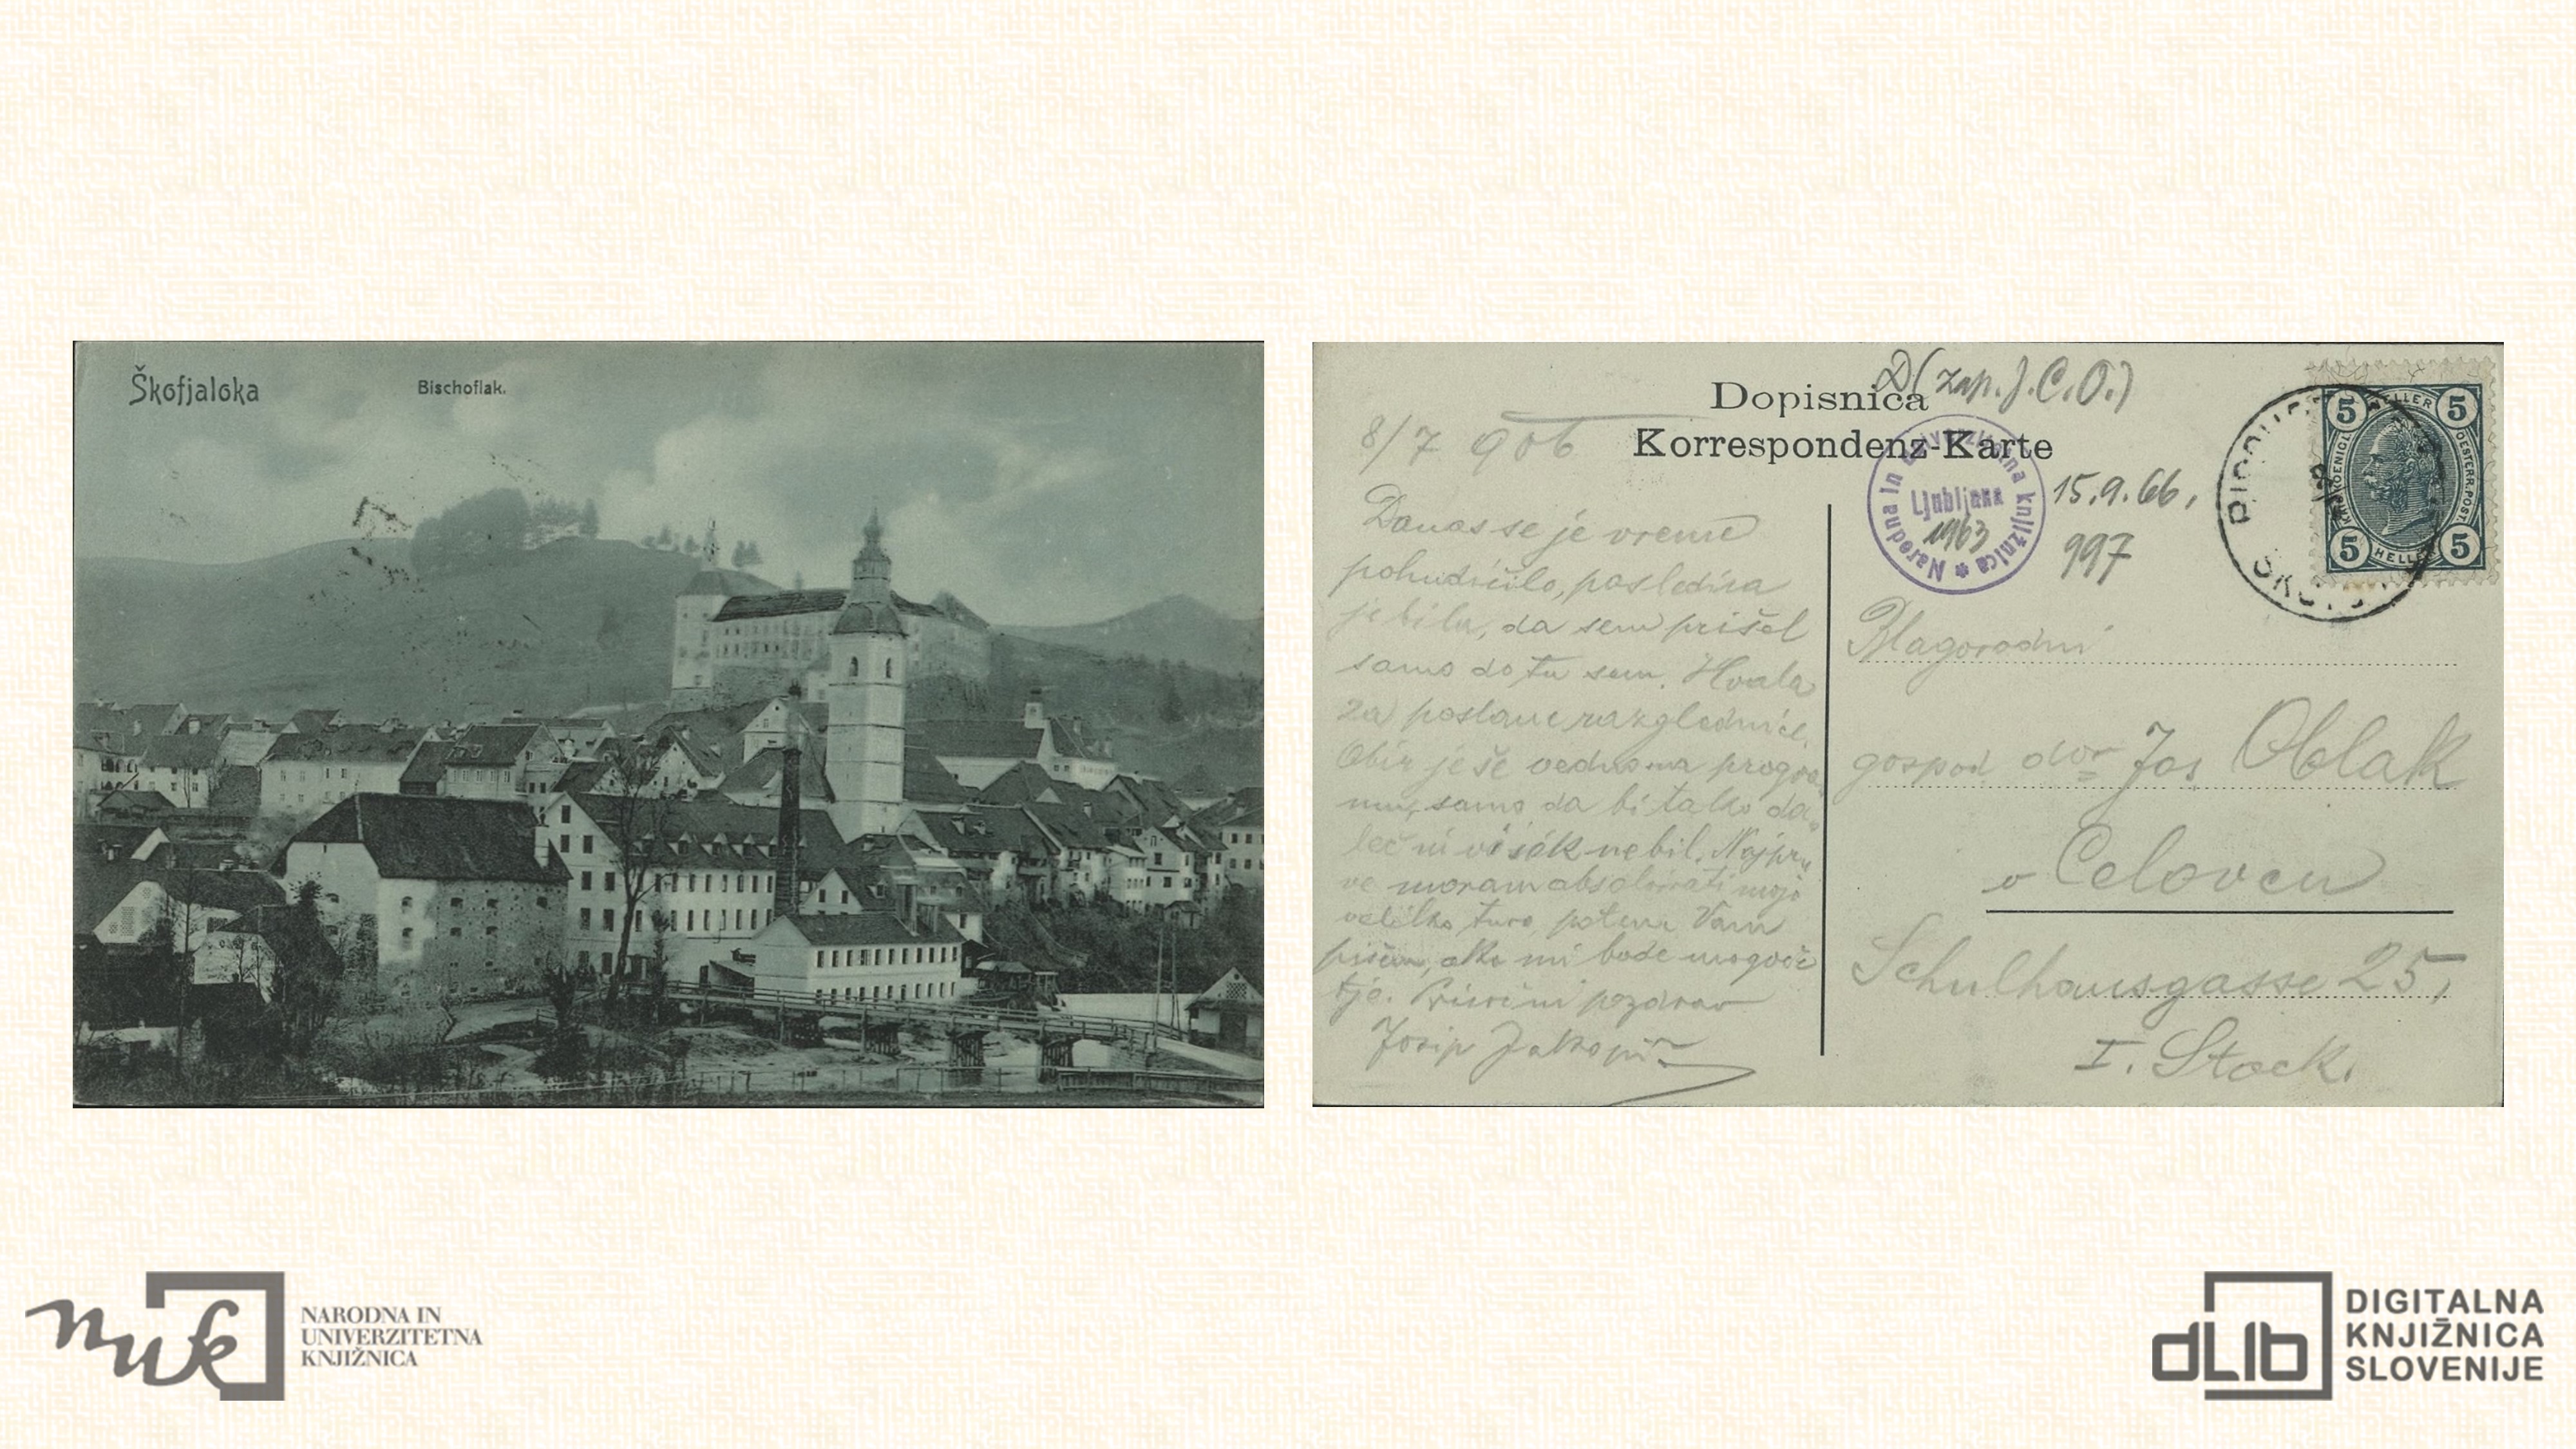 Škofjaloka
Bischoflak.
Dopisnica
Korrespondenz-Karte
D (zap. J. C. O.)
8/7 906
Narodna in univerzitetna knjižnica
Ljubljana
1963
15.9.66,
997
5 HELLER 5
5 HELLER 5
Danas se je vreme
pohudičilo, posledica
je bila, da sem prišel
samo do tu sem. Hvala
za poslane razglednice.
Obir je še vedno na progra
mu, samo da bi tako da
leč in visok ne bil. Najpr
vo moram absolvirati mojo
veliko turo, potem Vam
pišem, ako mi bode mogoče
tje. Prisrčni pozdrav
Josip
Blagorodni
gospod dvor Jos Oblak
v Celovcu
Schulhausgasse 25,
I. Stock.
nuk
NARODNA IN
UNIVERZITETNA
KNJIŽNICA
dLib
DIGITALNA
KNJIŽNICA
SLOVENIJE